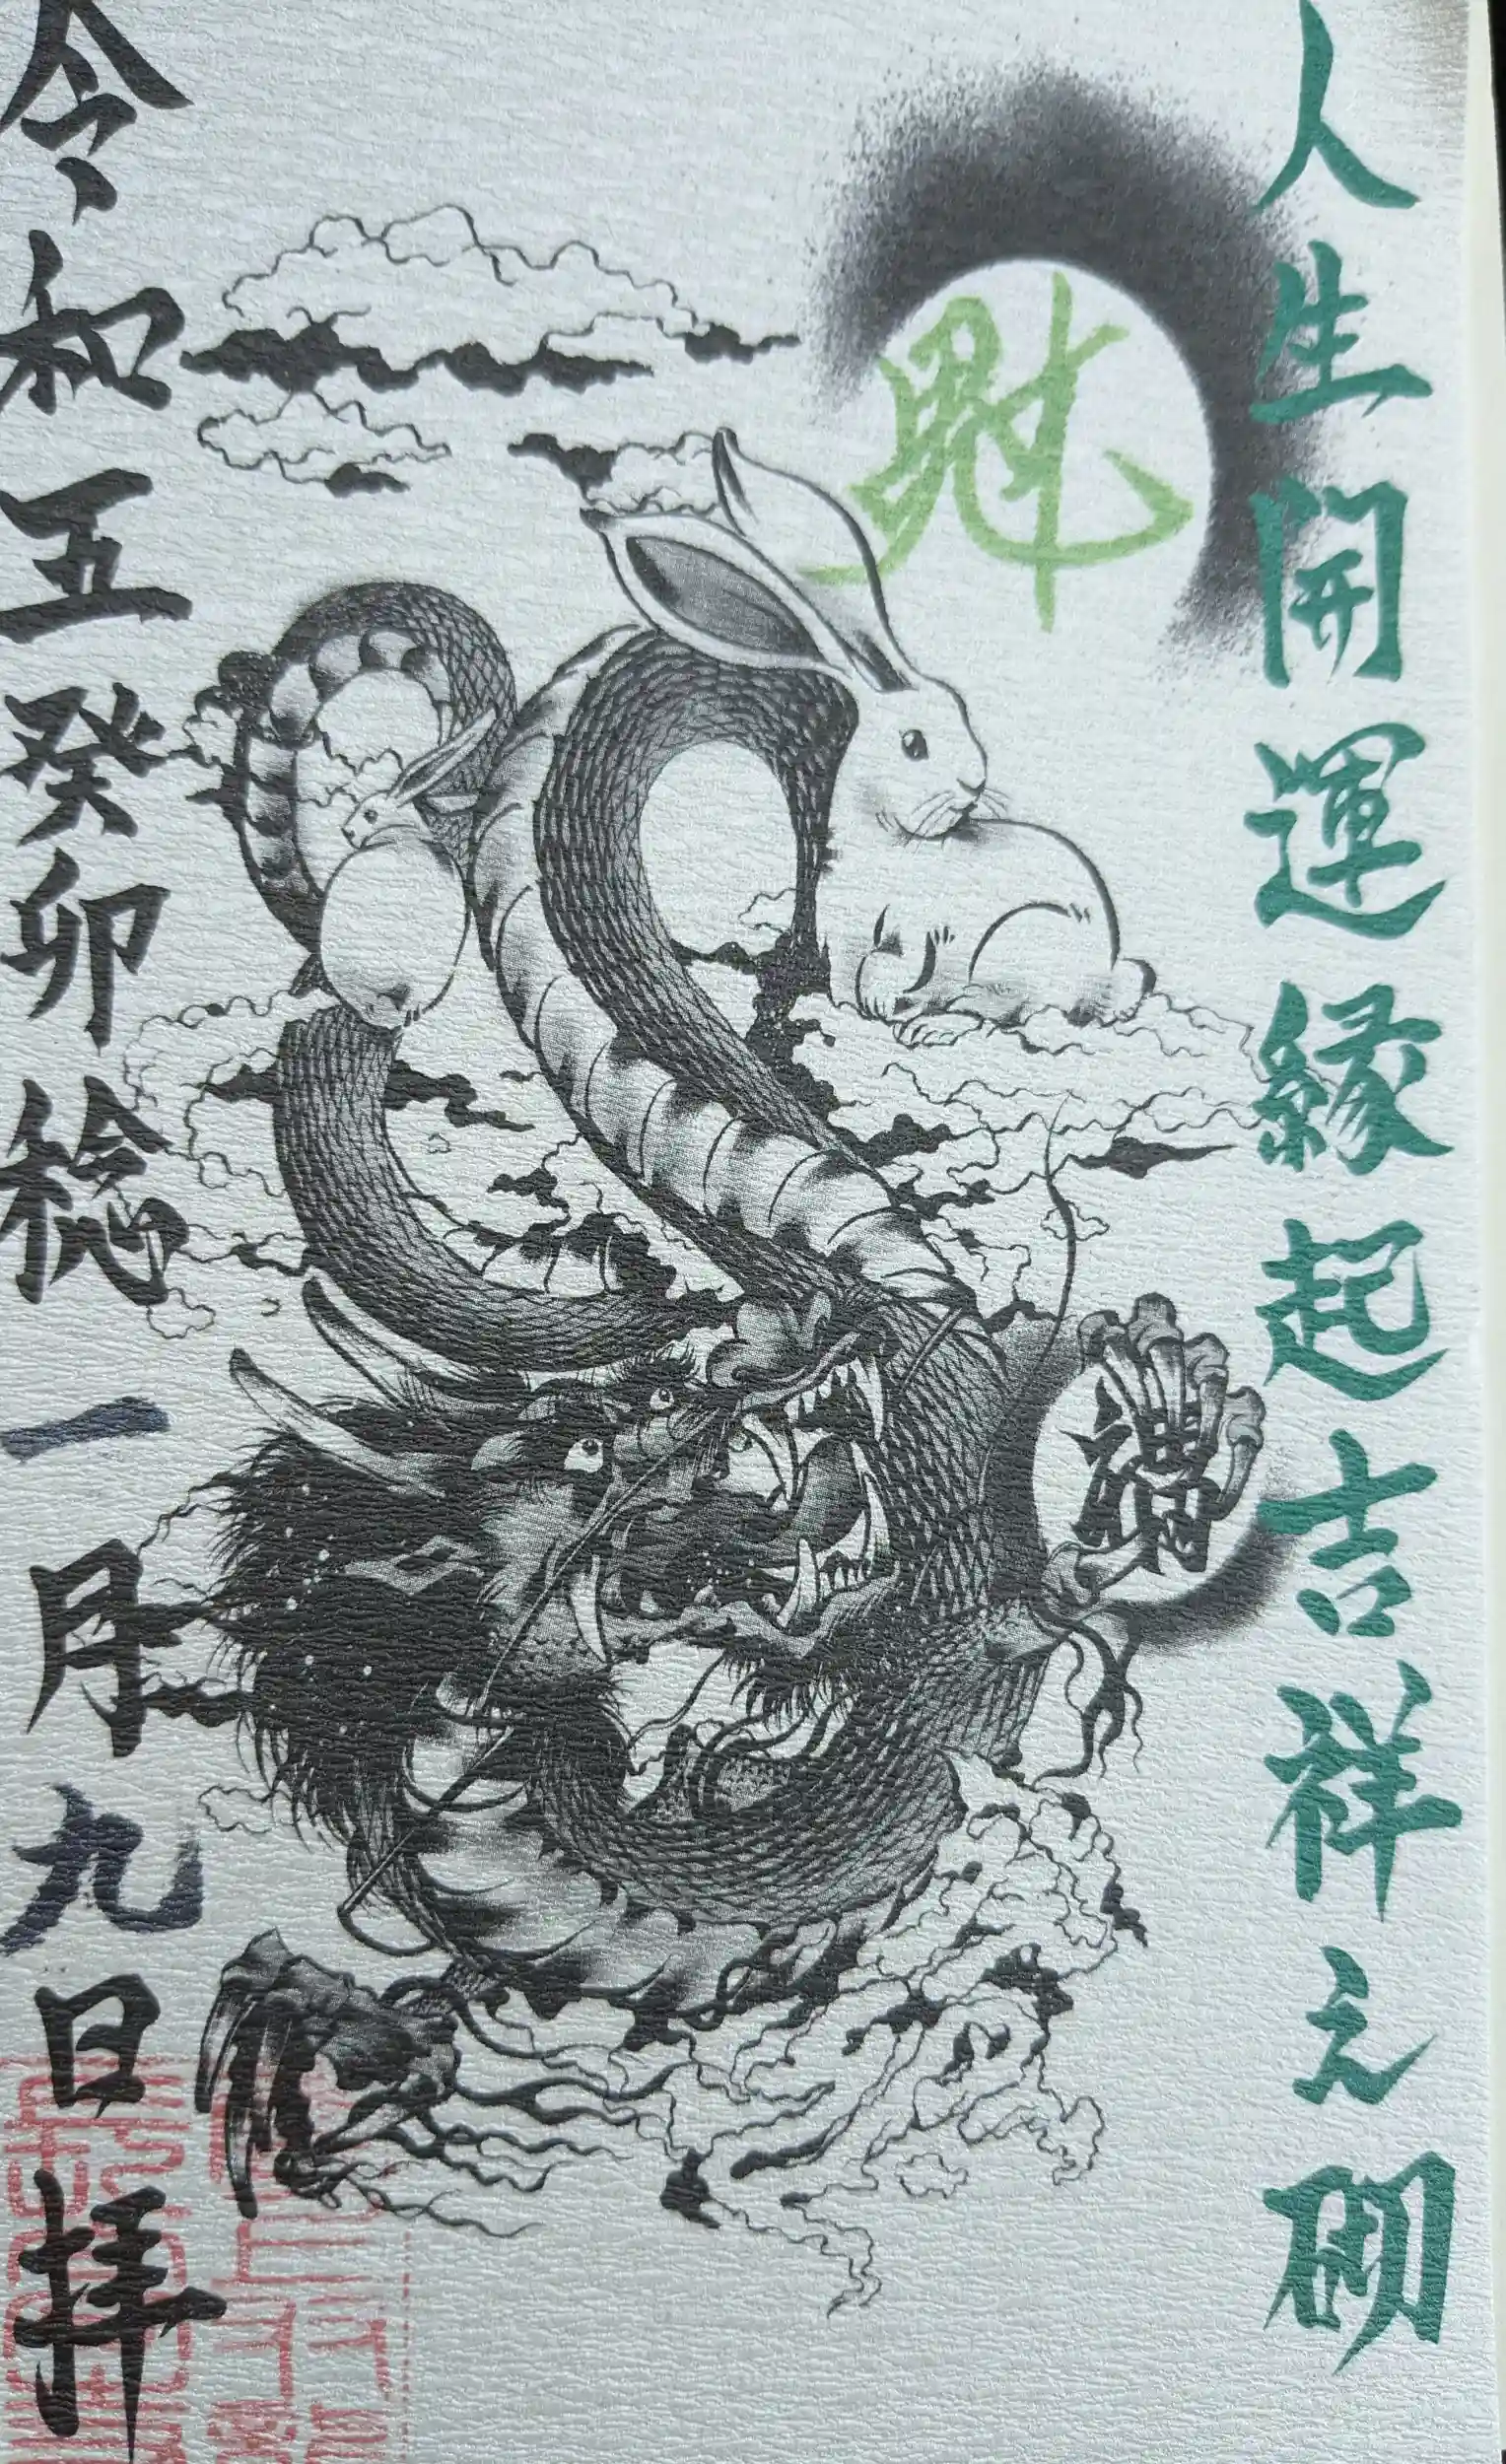 人生開運縁起吉祥之砌
魁
令和五癸卯稔一月九日拝